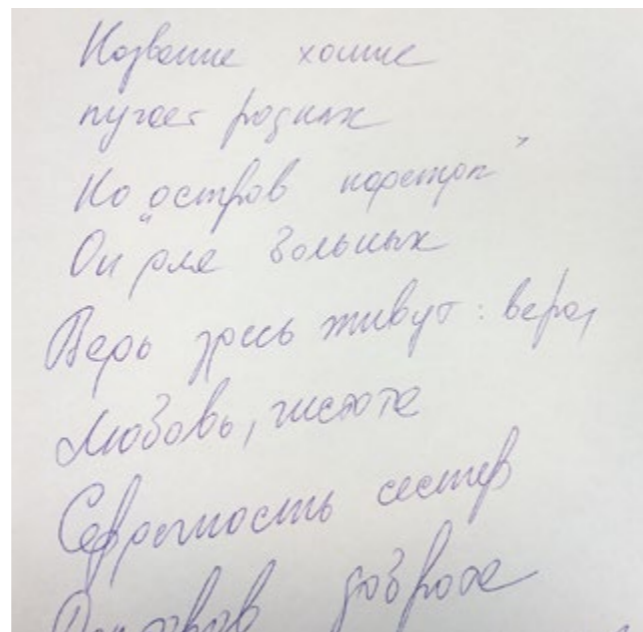 Название хоспис
пугает родных
Но "остров
Он для больных
Ведь здесь живут: вера,
Любовь, чистота
Сердечность сестер
Докторов доброта